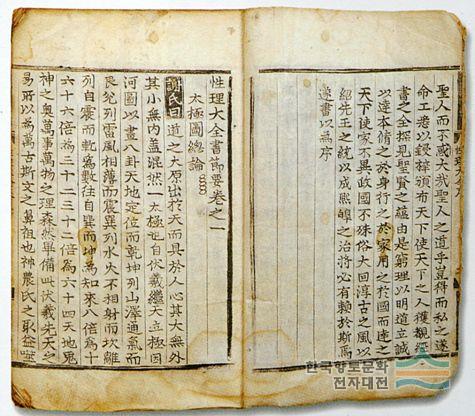 聖人而不惑大哉聖人之道乎豈得而私之遂
命工悉以鋟梓頒布天下使天下之人獲覩經
書之全探見聖賢之蘊由是窮理以明道立誠
以達本脩之於身行之於家用之於國而達之
天下使家不異政國不殊俗大回淳古之風以
紹先王之統以成熙皞之治將必有賴於斯焉
遂書以為序
性理大全書節要卷之一
太極圖總論
謝氏曰道之大原出於天而具於人心其大無外
其小無內蓋混然一太極也自伏羲繼天立極因
河圖以畫八卦天地定位而乾坤列山澤通氣而
艮兌列雷風相薄而震巽列水火不相射而坎離
列自震而乾為數往自巽而坤為知來八倍為十
六十六倍為三十二三十二倍為六十四天地鬼
神之奧萬事萬物之理森然畢備此伏羲先天之
易所以為萬古斯文之鼻祖也神農氏之取益噬
한국향토문화
전자대전